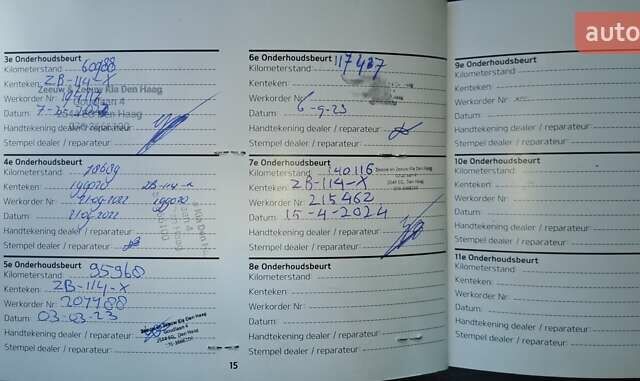 auto
3e Onderhoudsbeurt
Kilometerstand: 60988
Kenteken: ZB-114-X
Zeeuw & Zeeuw Kia Den Haag
Werkorder Nr:
Datum:
Handtekening dealer / reparateur:
Stempel dealer / reparateur:
4e Onderhoudsbeurt
Kilometerstand: 78689
Kenteken: 199020 ZB-114-x
Werkorder Nr: 21-09-2022 199020
Datum: 21-09-2022
Handtekening dealer / reparateur:
Stempel dealer / reparateur:
5e Onderhoudsbeurt
Kilometerstand: 95960
Kenteken: ZB-114-X
Werkorder Nr: 207488
Datum: 03-03-23
Handtekening dealer / reparateur:
Zeeuw en Zeeuw Kia Den Haag
Stempel dealer / reparateur:
15
6e Onderhoudsbeurt
Kilometerstand: 117437
Kenteken:
Werkorder Nr:
Datum: 6-9-23
Handtekening dealer / reparateur:
Stempel dealer / reparateur:
7e Onderhoudsbeurt
Kilometerstand: 140116
Zeeuw en Zeeuw Kia Den Haag
Kenteken: ZB-114-X
Werkorder Nr: 215462
Datum: 15-4-2024
Handtekening dealer / reparateur:
Stempel dealer / reparateur:
8e Onderhoudsbeurt
Kilometerstand:
Kenteken:
Werkorder Nr:
Datum:
Handtekening dealer / reparateur:
Stempel dealer / reparateur:
9e Onderhoudsbeurt
Kilometerstand:
Kenteken:
Werkorder Nr:
Datum:
Handtekening dealer / reparateur:
Stempel dealer / reparateur:
10e Onderhoudsbeurt
Kilometerstand:
Kenteken:
Werkorder Nr:
Datum:
Handtekening dealer / reparateur:
Stempel dealer / reparateur:
11e Onderhoudsbeurt
Kilometerstand:
Kenteken:
Werkorder Nr:
Datum:
Handtekening dealer / reparateur:
Stempel dealer / reparateur: